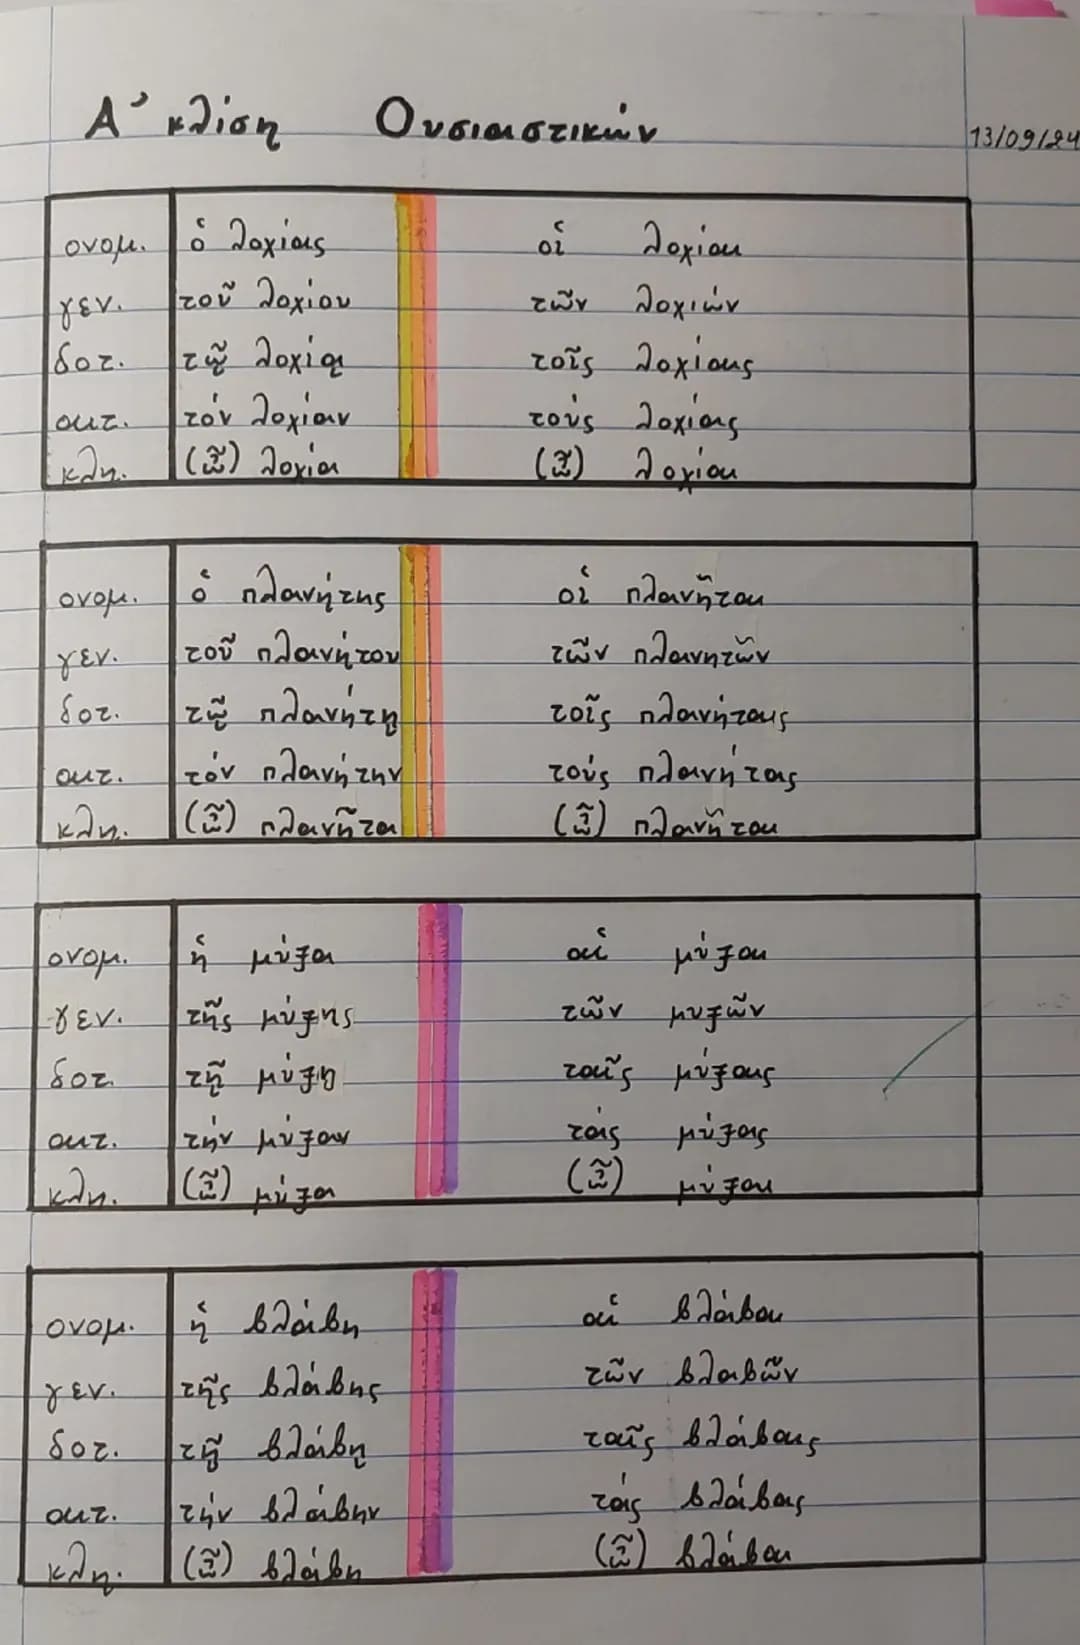 Α' κλίση Ουσιαστικών
13/09/24
ονομ. ὁ λοχίας οἱ λοχίαι
γεν. τοῦ λοχίου τῶν λοχιών
δοτ. τῷ λοχίᾳ τοῖς λοχίαις
αιτ. τόν λοχίαν τούς λοχίας
κλη. (ὦ) λοχία (ὦ) λοχίαι
ονομ. ὁ πλανήτης οἱ πλανῆται
γεν. τοῦ πλανήτου τῶν πλανητῶν
δοτ. τῷ πλανήτῃ τοῖς πλανήταις
αιτ. τόν πλανήτην τούς πλανήτας
κλη. (ὦ) πλανῆτα (ὦ) πλανῆται
ονομ. ἡ μύξα αἱ μύξαι
γεν. τῆς μύξης τῶν μυξῶν
δοτ. τῇ μύξῃ ταῖς μύξαις
αιτ. τήν μύξαν τάς μύξας
κλη. (ὦ) μύξα (ὦ) μύξαι
ονομ. ἡ βλάβη αἱ βλάβαι
γεν. τῆς βλάβης τῶν βλαβῶν
δοτ. τῇ βλάβῃ ταῖς βλάβαις
αιτ. τήν βλάβην τάς βλάβας
κλη. (ὦ) βλάβη (ὦ) βλάβαι